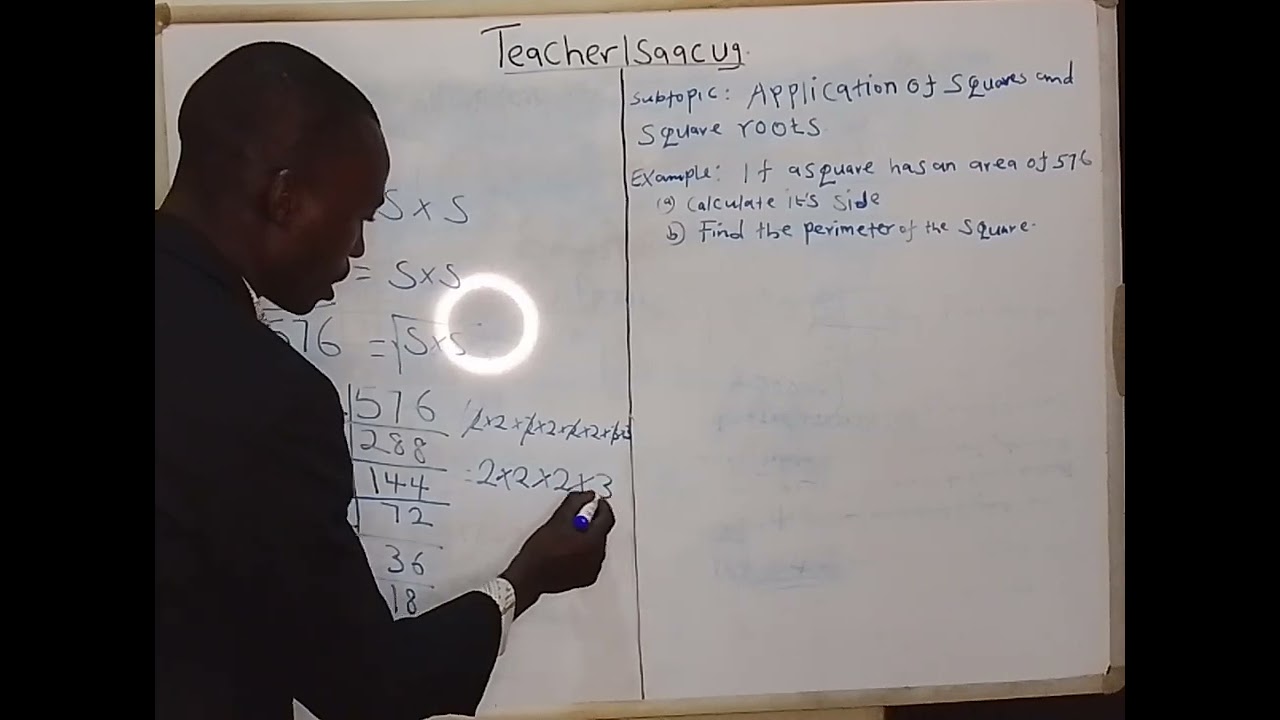 Teacher Isaac ug.
S x S
= S x S
576 = √S x S
576
288
144
72
36
18
2x2x2x2x2x2x3x3
= 2x2x2x3
Subtopic: Application of Squares and
Square roots.
Example: If a square has an area of 576
(a) Calculate it's side
b) Find the perimeter of the square.